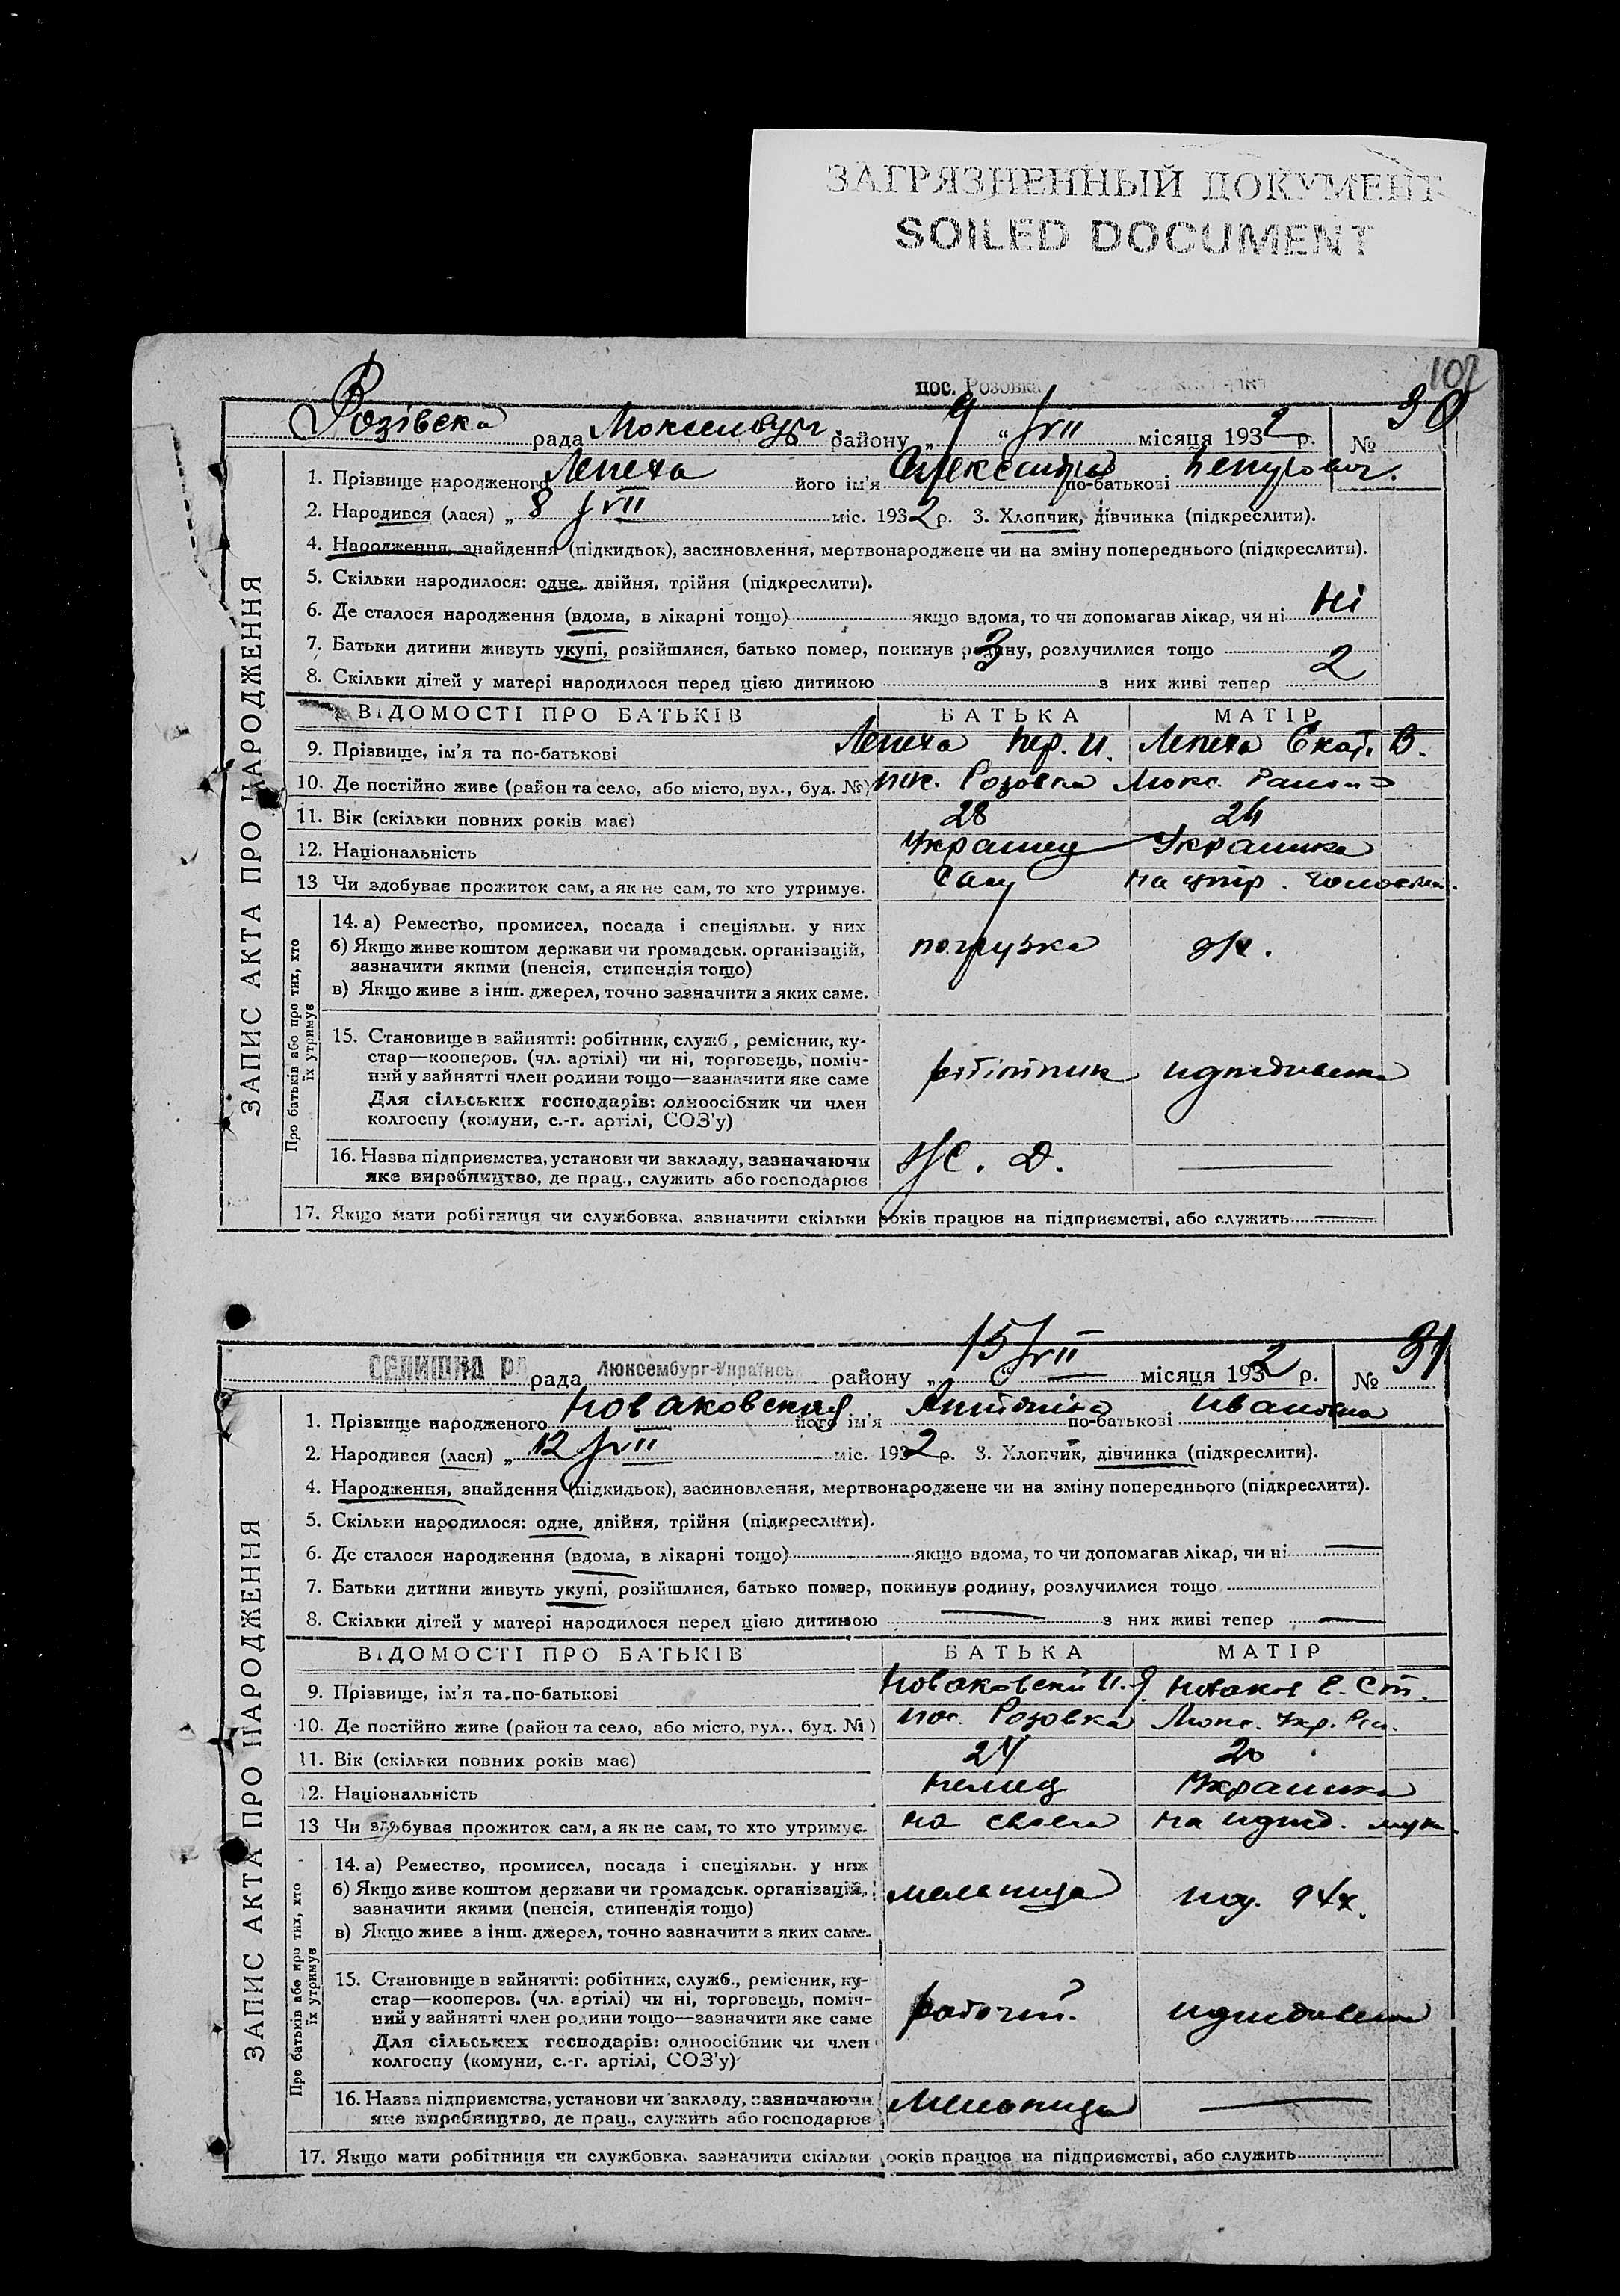 ЗАГРЯЗНЕННЫЙ ДОКУМЕНТ
SOILED DOCUMENT
107
пос. Розовка
Розівська рада Люксембург. району „9“ VII місяця 1932 р. № 30
ЗАПИС АКТА ПРО НАРОДЖЕННЯ
1. Прізвище народженого Лепеха його ім'я Александр по-батькові
2. Народився (лася) „8 VII міс. 1932 р. 3. Хлопчик, дівчинка (підкреслити).
4. Народження, знайдення (підкидьок), засиновлення, мертвонароджене чи на зміну попереднього (підкреслити).
5. Скільки народилося: одне, двійня, трійня (підкреслити).
6. Де сталося народження (вдома, в лікарні тощо) якщо вдома, то чи допомагав лікар, чи ні Ні
7. Батьки дитини живуть укупі, розійшлися, батько помер, покинув родину, розлучилися тощо
8. Скільки дітей у матері народилося перед цією дитиною 3 з них живі тепер 2
ВІДОМОСТІ ПРО БАТЬКІВ БАТЬКА МАТІР
9. Прізвище, ім'я та по-батькові Лепеха И. Лепеха Екат. В.
10. Де постійно живе (район та село, або місто, вул., буд. №) Розовка Люкс. Район
11. Вік (скільки повних років має) 28 24
12. Національність Украинец Украинка
13 Чи здобуває прожиток сам, а як не сам, то хто утримує. Сам на утр.
Про батьків або про тих, хто їх утримує
14. а) Ремество, промисел, посада і спеціяльн. у них
б) Якщо живе коштом держави чи громадськ. організацій,
зазначити якими (пенсія, стипендія тощо) погрузка
в) Якщо живе з інш. джерел, точно зазначити з яких саме.
15. Становище в зайнятті: робітник, служб., ремісник, ку-
стар—кооперов. (чл. артілі) чи ні, торговець, поміч-
ний у зайнятті член родини тощо—зазначити яке саме робітник
Для сільських господарів: одноосібник чи член
колгоспу (комуни, с.-г. артілі, СОЗ'у)
16. Назва підприємства, установи чи закладу, зазначаючи Ж. Д.
яке виробництво, де прац., служить або господарює
17. Якщо мати робітниця чи службовка, зазначити скільки років працює на підприємстві, або служить
СЕЛИШНА РА рада Люксембург-Українсь району „15 VII місяця 1932 р. № 31
ЗАПИС АКТА ПРО НАРОДЖЕННЯ
1. Прізвище народженого Новаковская його ім'я Антоніна по-батькові Ивановна
2. Народився (лася) „12 VII міс. 1932 р. 3. Хлопчик, дівчинка (підкреслити).
4. Народження, знайдення (підкидьок), засиновлення, мертвонароджене чи на зміну попереднього (підкреслити).
5. Скільки народилося: одне, двійня, трійня (підкреслити).
6. Де сталося народження (вдома, в лікарні тощо) якщо вдома, то чи допомагав лікар, чи ні
7. Батьки дитини живуть укупі, розійшлися, батько помер, покинув родину, розлучилися тощо
8. Скільки дітей у матері народилося перед цією дитиною з них живі тепер
ВІДОМОСТІ ПРО БАТЬКІВ БАТЬКА МАТІР
9. Прізвище, ім'я та по-батькові Новаковский И. Я. Е. Ст.
10. Де постійно живе (район та село, або місто, вул., буд. №) пос. Розовка Люкс. Укр.
11. Вік (скільки повних років має) 24 20
12. Національність немец Украинка
13 Чи здобуває прожиток сам, а як не сам, то хто утримує. на своем на
Про батьків або про тих, хто їх утримує
14. а) Ремество, промисел, посада і спеціяльн. у них
б) Якщо живе коштом держави чи громадськ. організацій, мельница
зазначити якими (пенсія, стипендія тощо)
в) Якщо живе з інш. джерел, точно зазначити з яких саме.
15. Становище в зайнятті: робітник, служб., ремісник, ку-
стар—кооперов. (чл. артілі) чи ні, торговець, поміч-
ний у зайнятті член родини тощо—зазначити яке саме рабочий
Для сільських господарів: одноосібник чи член
колгоспу (комуни, с.-г. артілі, СОЗ'у)
16. Назва підприємства, установи чи закладу, зазначаючи Мельница
яке виробництво, де прац., служить або господарює
17. Якщо мати робітниця чи службовка, зазначити скільки років працює на підприємстві, або служить